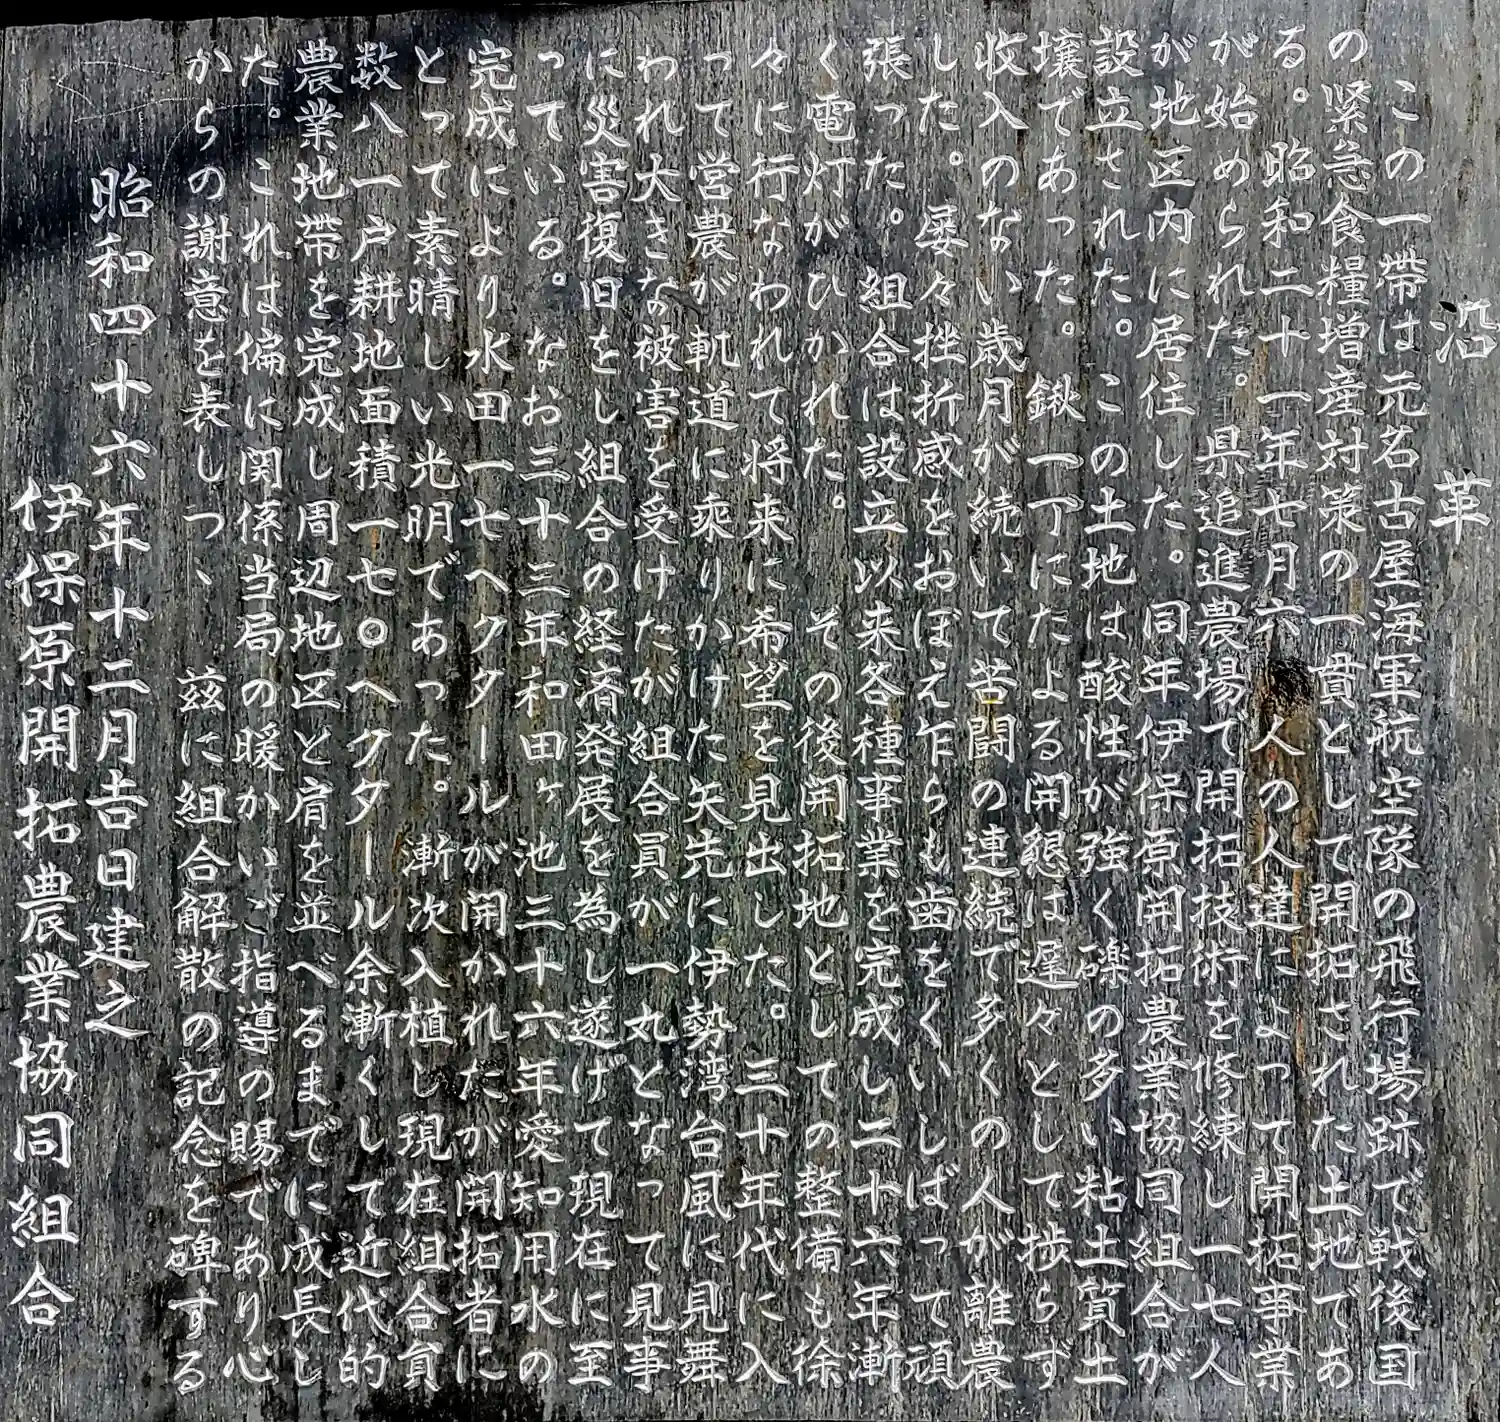 沿革
この一帯は元名古屋海軍航空隊の飛行場跡で戦後国
の緊急食糧増産対策の一貫として開拓された土地であ
る。昭和二十一年七月六一人の人達によって開拓事業
が始められた。県追進農場で開拓技術を修練し一七人
が地区内に居住した。同年伊保原開拓農業協同組合が
設立された。この土地は酸性が強く礫の多い粘土質土
壌であった。鍬一丁にたよる開懇は遅々として捗らず
収入のない歳月が続いて苦闘の連続で多くの人が離農
した。屡々挫折感をおぼえ乍らも歯をくいしばって頑
張った。組合は設立以来各種事業を完成し二十六年漸
く電灯がひかれた。その後開拓地としての整備も徐
々に行なわれて将来に希望を見出した。三十年代に入
って営農が軌道に乗りかけた矢先に伊勢湾台風に見舞
われ大きな被害を受けたが組合員が一丸となって見事
に災害復旧をし組合の経済発展を為し遂げて現在に至
っている。なお三十三年和田ヶ池三十六年愛知用水の
完成により水田一七ヘクタールが開かれたが開拓者に
とって素晴しい光明であった。漸次入植し現在組合員
数八一戸耕地面積一七〇ヘクタール余漸くして近代的
農業地帯を完成し周辺地区と肩を並べるまでに成長し
た。これは偏に関係当局の暖かいご指導の賜であり心
からの謝意を表しつゝ茲に組合解散の記念を碑する
昭和四十六年十二月吉日建之
伊保原開拓農業協同組合